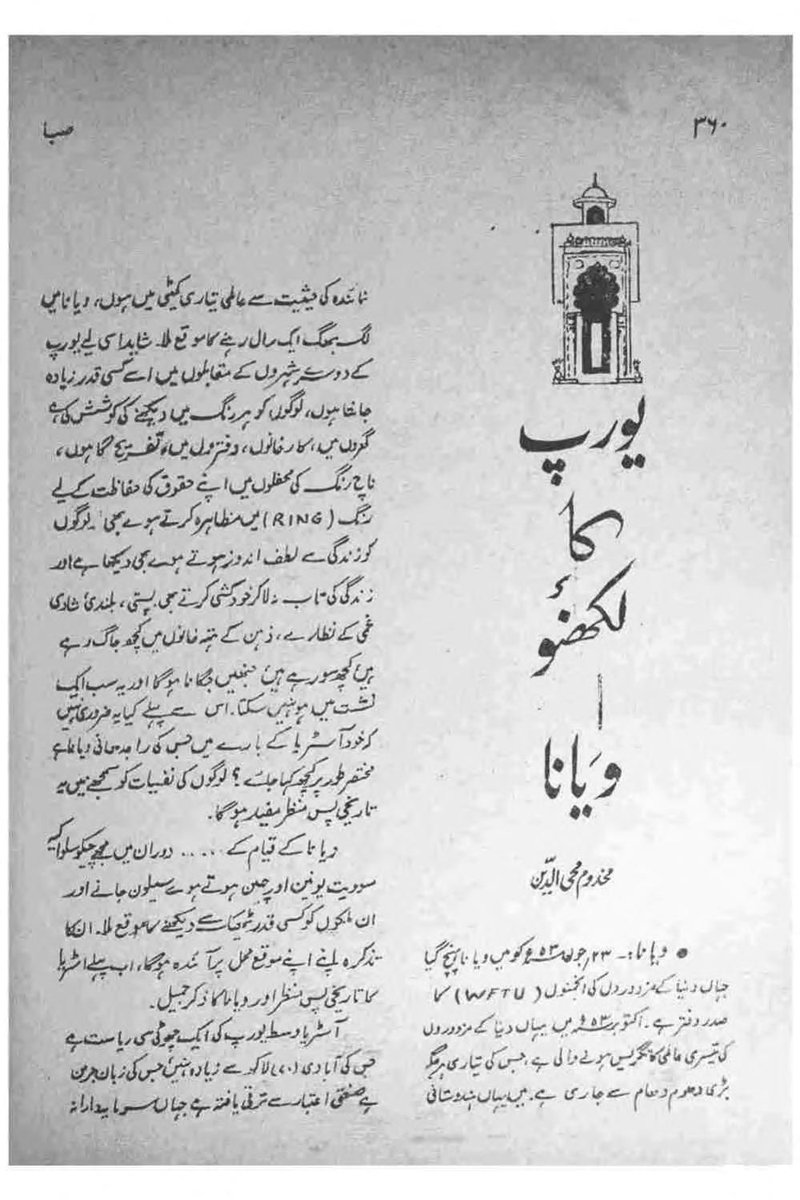 ۳۶۰
صبا
یورپ
کا
لکھنؤ
ویانا
مخدوم محی الدین
● ویانا:۔ ۲۳؍ جون ۵۳ء کو میں ویانا پہنچ گیا
جہاں دنیا کے مزدوروں کی انجمنوں (WFTU) کا
صدر دفتر ہے۔ اکتوبر ۵۳ء میں یہاں دنیا کے مزدوروں
کی تیسری عالمی کانگریس ہونے والی ہے، جس کی تیاری ہر جگہ
بڑی دھوم دھام سے جاری ہے۔ میں یہاں ہندوستانی
نمائندہ کی حیثیت سے عالمی تیاری کمیٹی میں ہوں، ویانا میں
لگ بھگ ایک سال رہنے کا موقع ملا۔ شاید اسی لیے یورپ
کے دوسرے شہروں کے مقابلوں میں اسے کسی قدر زیادہ
جانتا ہوں، لوگوں کو ہر رنگ میں دیکھنے کی کوشش کی ہے
گھروں میں، کارخانوں، دفتروں میں، تفریح گاہوں،
ناچ رنگ کی محفلوں میں اپنے حقوق کی حفاظت کے لیے
رنگ (RING) میں مظاہرہ کرتے ہوے بھی۔ لوگوں
کو زندگی سے لطف اندوز ہوتے ہوے بھی دیکھا ہے اور
زندگی کی تاب نہ لا کر خودکشی کرتے بھی۔ پستی، بلندی شادی
غمی کے نظارے، ذہن کے تہہ خانوں میں کچھ جاگ رہے
ہیں کچھ سو رہے ہیں جنھیں جگانا ہوگا اور یہ سب ایک
نشست میں ہو نہیں سکتا۔ اس سے پہلے کیا یہ ضروری نہیں
کہ خود آسٹریا کے بارے میں جس کی راجدھانی ویانا ہے
مختصر طور پر کچھ کہا جائے؟ لوگوں کی نفسیات کو سمجھنے میں یہ
تاریخی پس منظر مفید ہوگا۔
ویانا کے قیام کے ..... دوران میں مجھے چیکوسلواکیہ
سوویت یونین اور چین ہوتے ہوے سیلون جانے اور
ان ملکوں کو کسی قدر دیکھنے کا موقع ملا۔ ان کا
تذکرہ اپنے اپنے موقع محل پر آئندہ ہوگا، اب پہلے آسٹریا
کا تاریخی پس منظر اور ویانا کا ذکر جمیل۔
آسٹریا وسط یورپ کی ایک چھوٹی سی ریاست ہے
جس کی آبادی (۷۰) لاکھ سے زیادہ نہیں جس کی زبان جرمن
ہے صنعتی اعتبار سے ترقی یافتہ ہے جہاں سرمایہ دارانہ